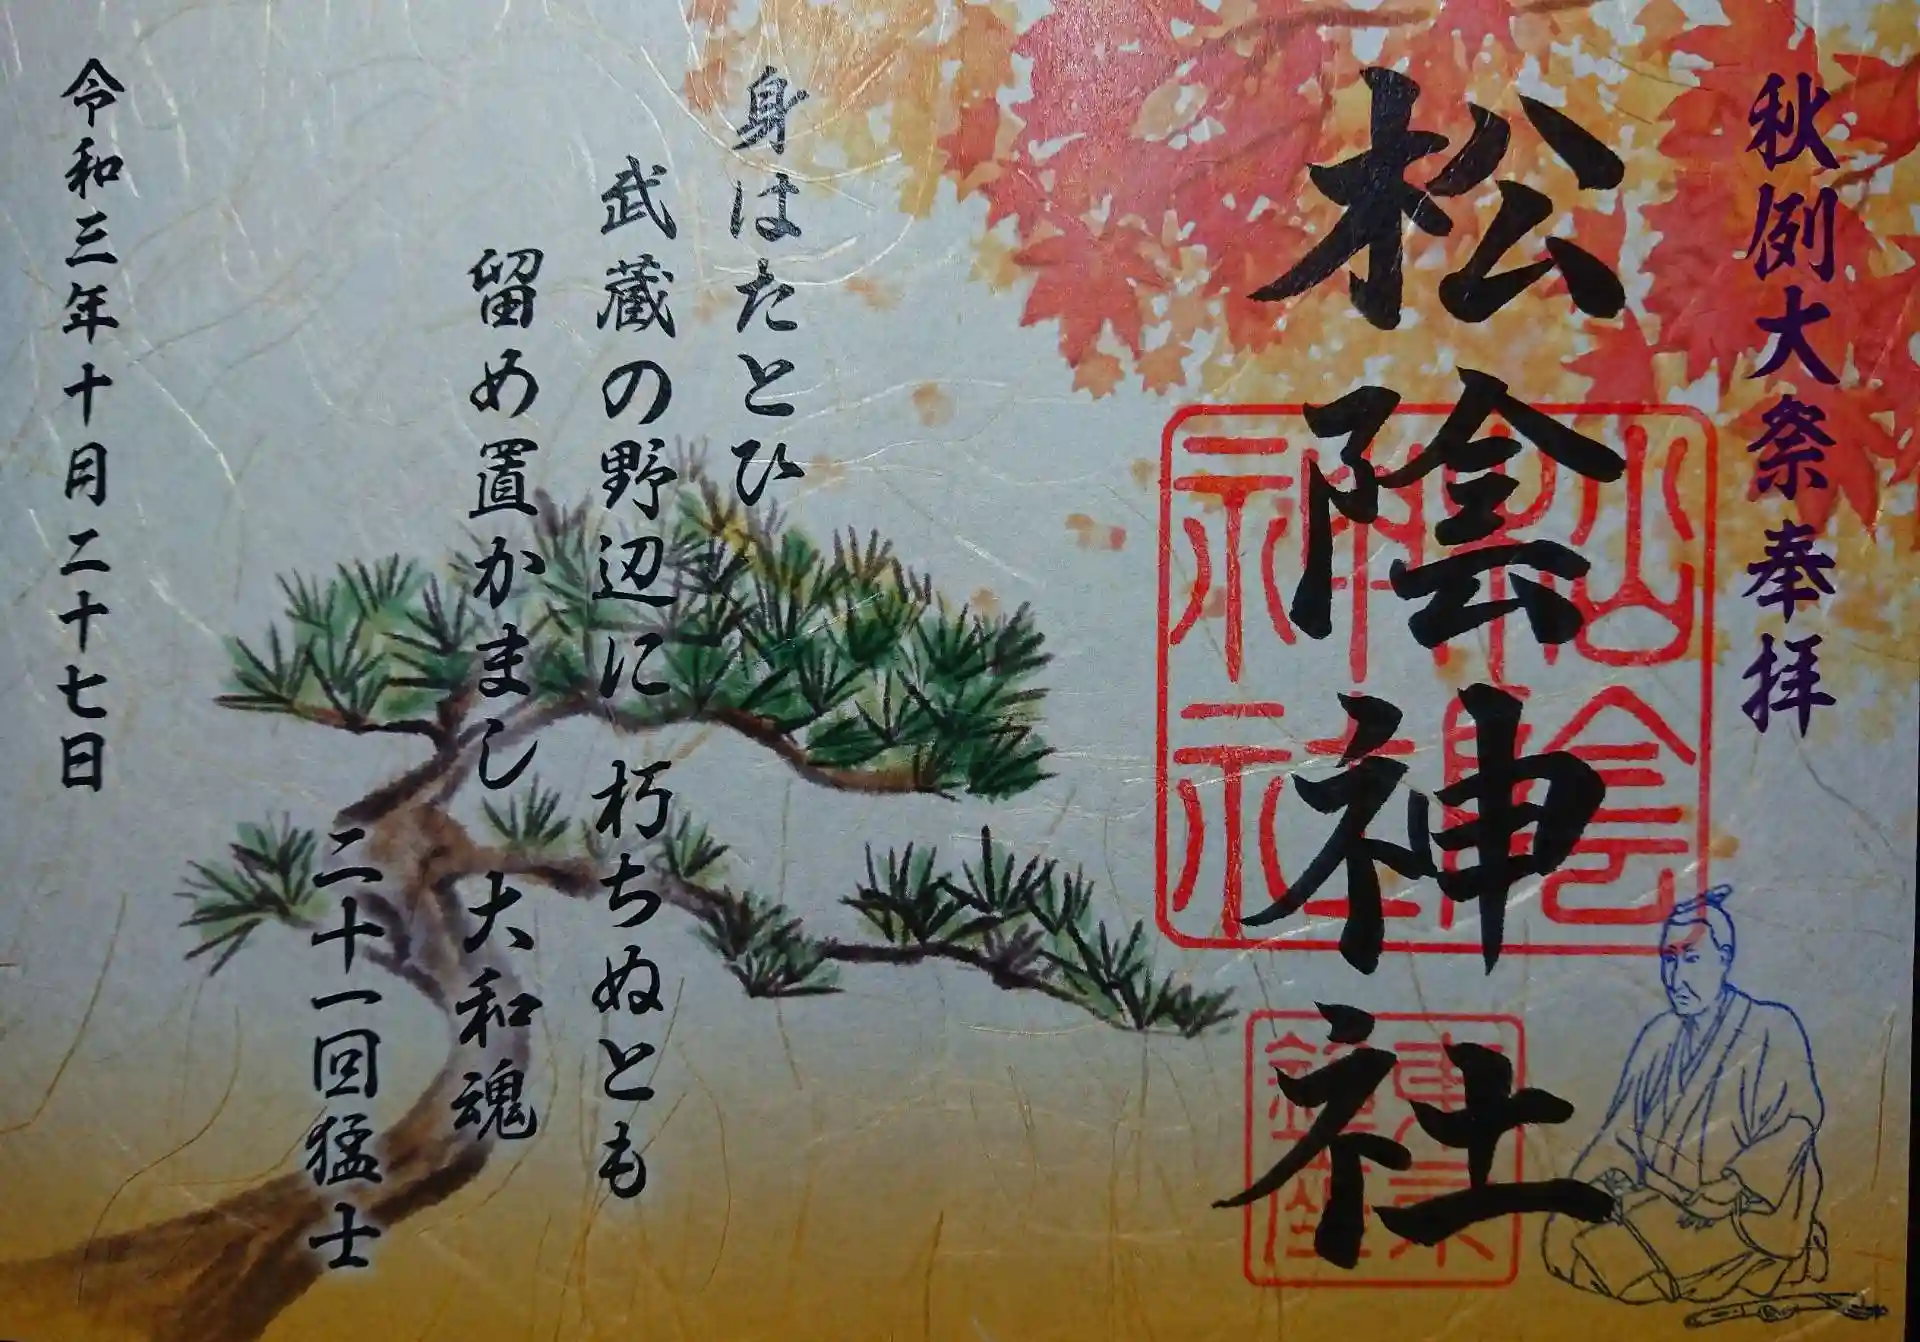 秋例大祭奉拝
松陰神社
松陰神社
東京鎮座
身はたとひ
武蔵の野辺に 朽ちぬとも
留め置かまし 大和魂
二十一回猛士
令和三年十月二十七日